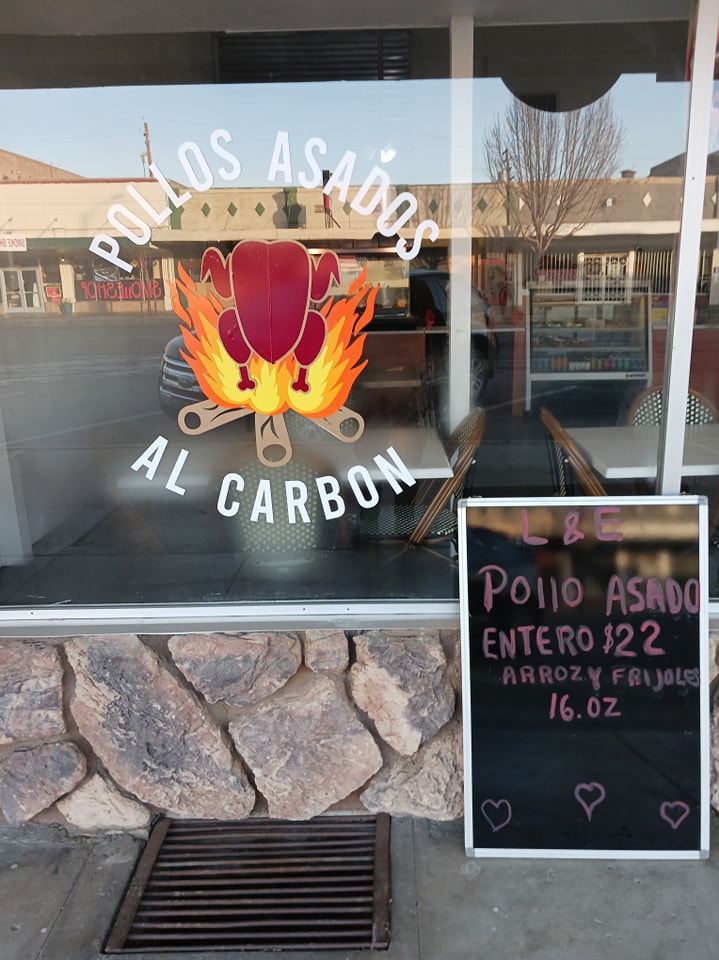 POLLOS ASADOS
AL CARBON
SMOKE SHOP
L & E
POllO ASADO
ENTERO $22
ARROZ Y FRIJOLES
16.OZ